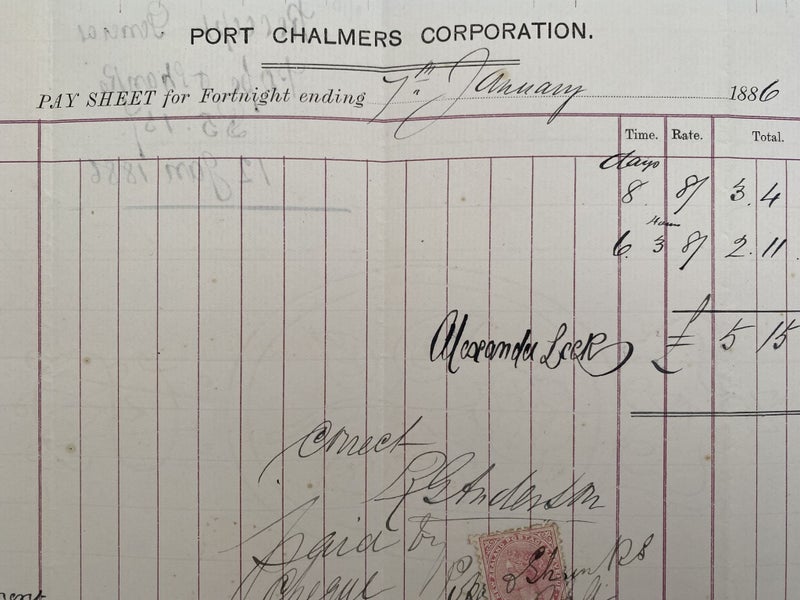 PORT CHALMERS CORPORATION.
PAY SHEET for Fortnight ending 7th January 1886
Time. Rate. Total.
days
8 8/ 3. 4
6. 3 8/ 2. 11
Alexander Leck £ 5 15
Correct
R G Anderson
paid by
Cheque